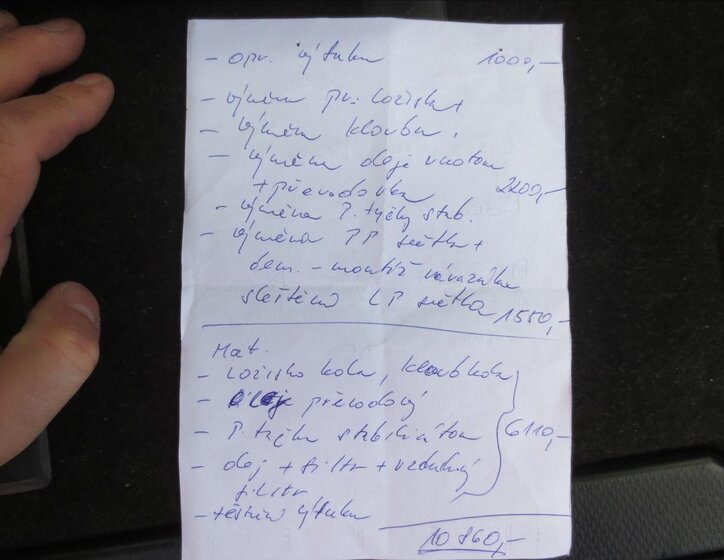 - opr. výfuku 1000,-
- výměna př. ložiska +
- výměna kloubu.
- výměna oleje v motoru
+ převodovka 2200,-
- výměna P. tyčky stab.
- výměna PP světla +
dem. - montáž nárazníku
sleštění LP světla 1550,-
Mat.
- ložisko kola, kloub kola
- olej převodový
- P tyčka stabilizátoru 6110,-
- olej + filtr + vzduchový
filtr
- těsnění výfuku
10 860,-